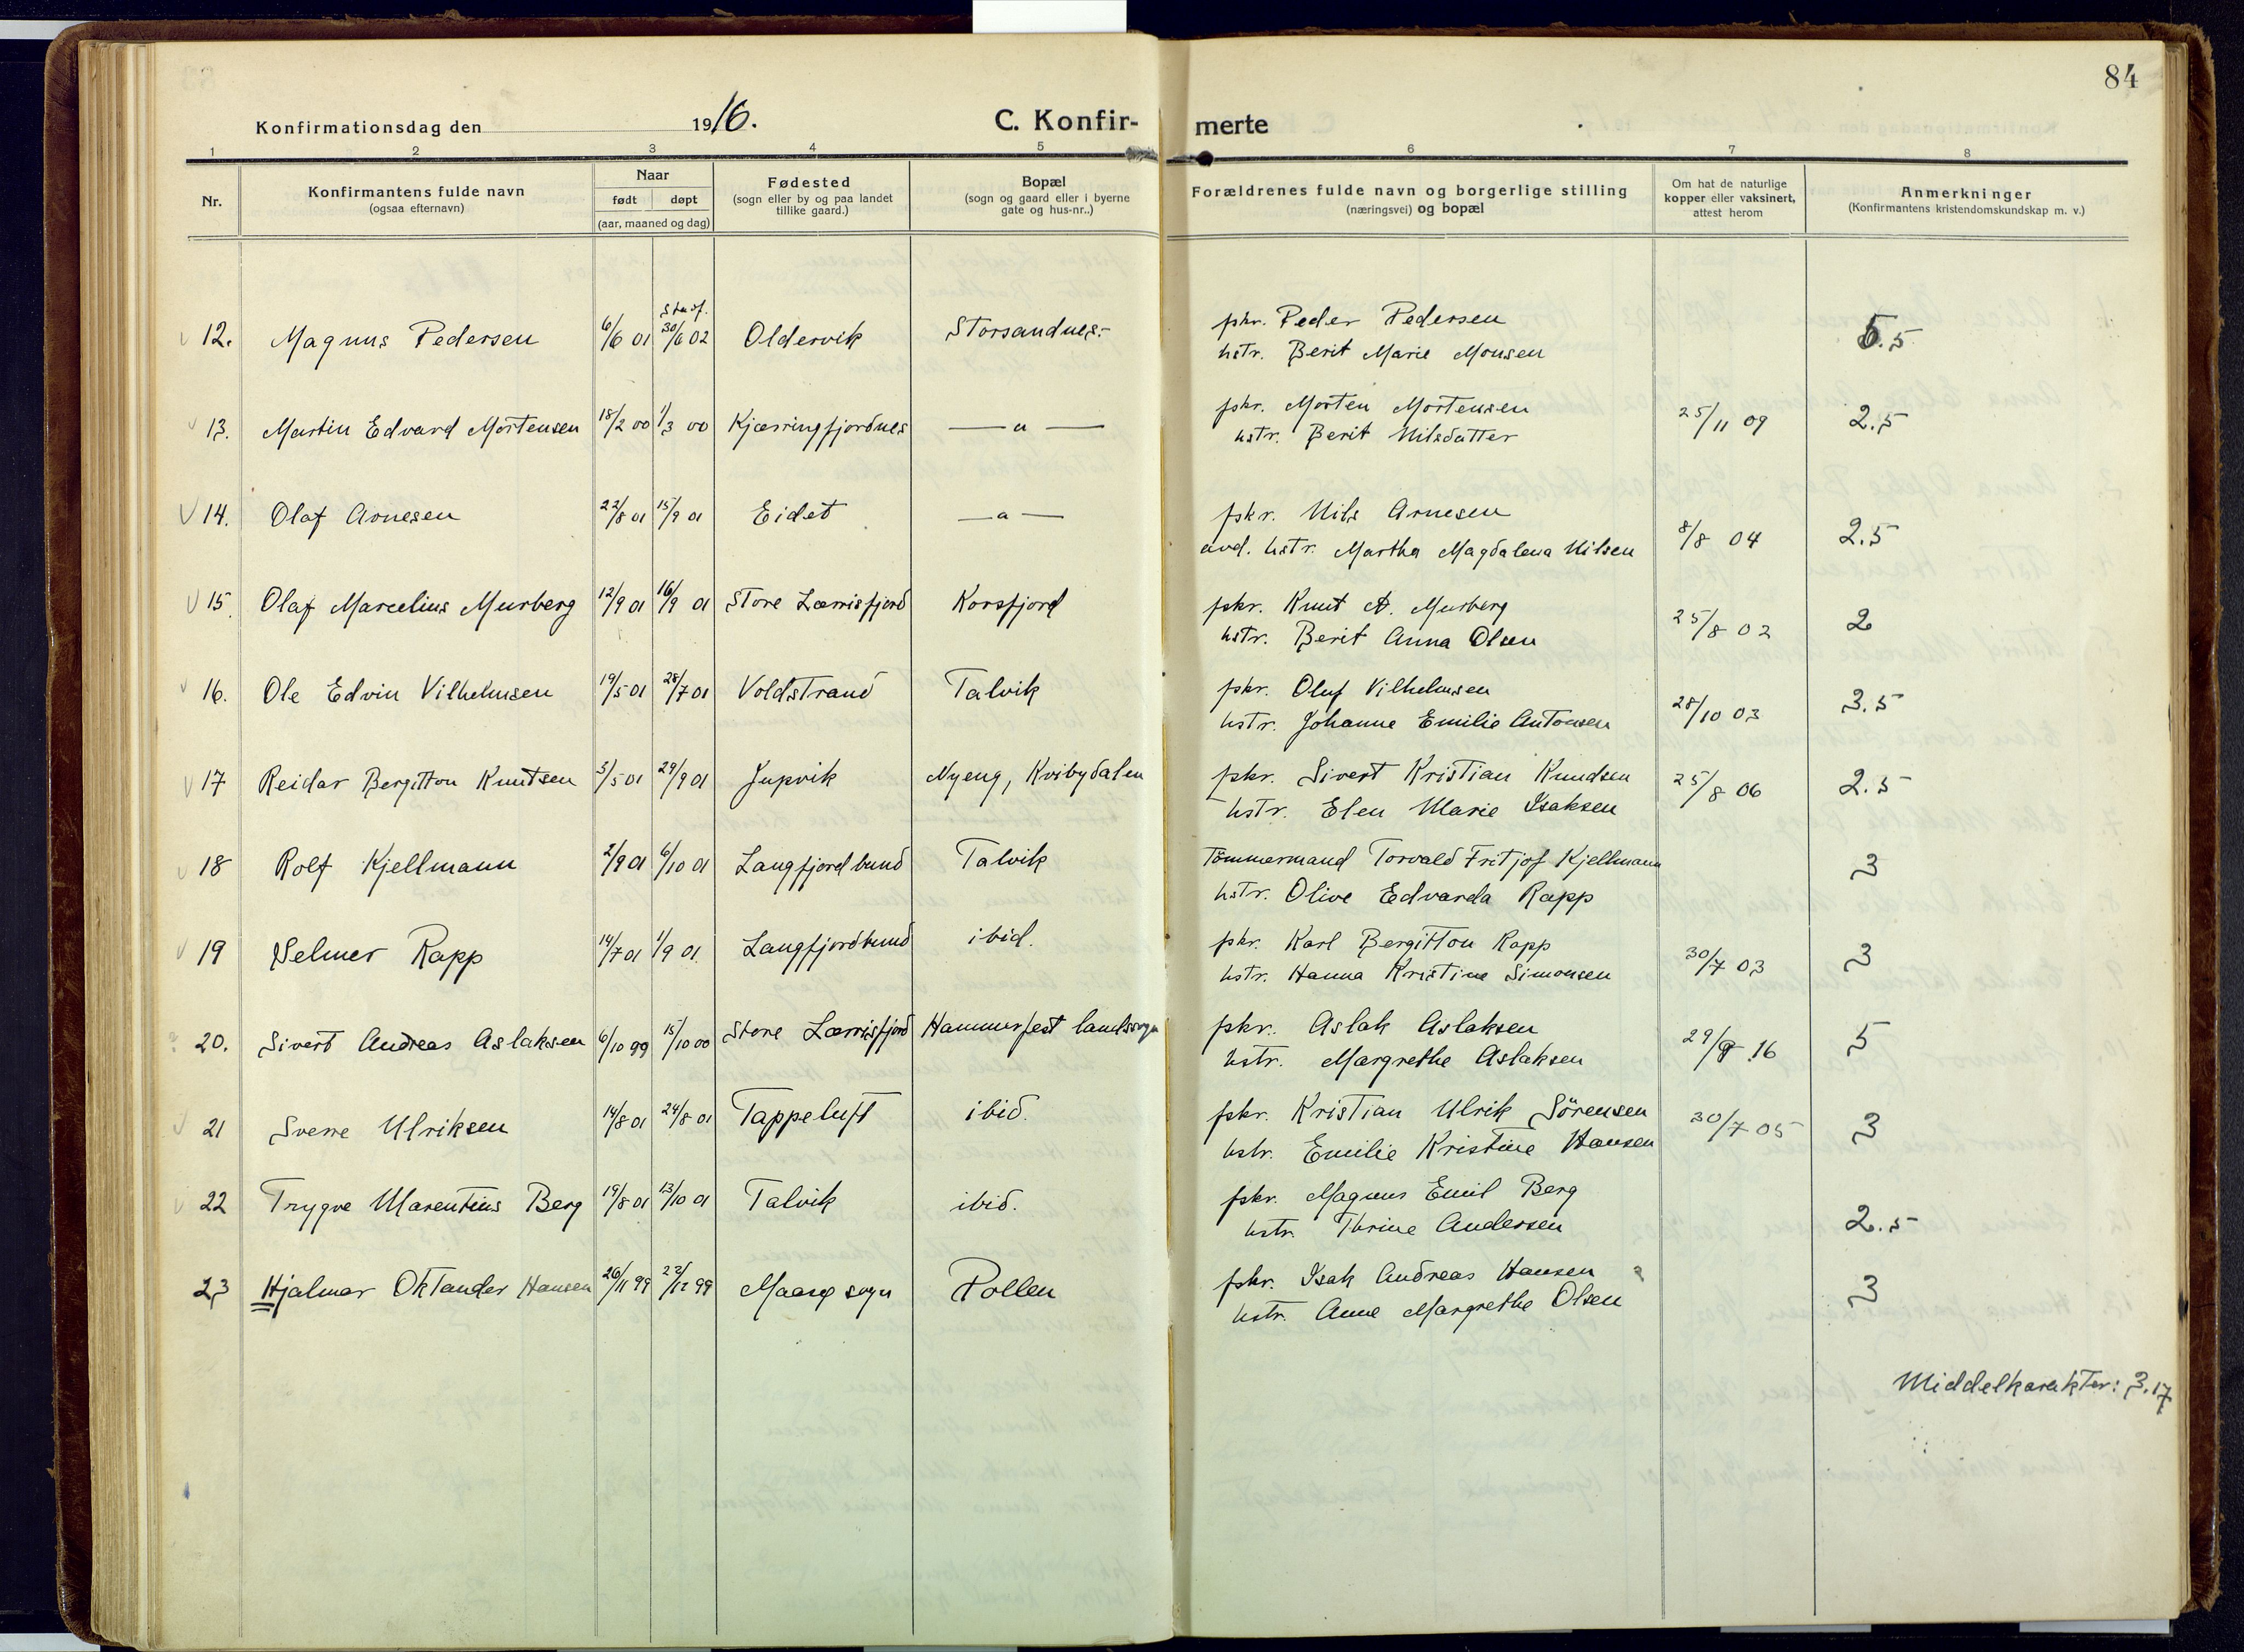 84
Konfirmationsdag den 1916. C. Konfirmerte
1 2 3 4 5 6 7 8
Nr. Konfirmantens fulde navn (ogsaa efternavn) Naar født døpt (aar, maaned og dag) Fødested (sogn eller by og paa landet tillike gaard.) Bopæl (sogn og gaard eller i byerne gate og hus-nr..) Forældrenes fulde navn og borgerlige stilling (næringsvei) og bopæl Om hat de naturlige kopper eller vaksinert, attest herom Anmerkninger (Konfirmantens kristendomskundskap m. v.)
12. Magnus Pedersen 6/6 01 30/6 02 Oldervik Storsandnes.- fskr. Peder Pedersen 5.5
hstr. Berit Marie Monsen
13. Martin Edvard Mortensen 18/2 00 1/3 00 Kjærringfjordnes — " — fskr. Morten Mortensen 25/11 09 2.5
hstr. Berit Nilsdatter
14. Olaf Arnesen 22/8 01 15/9 01 Eidet — " — fskr. Nils Arnesen 8/8 04 2.5
avd. hstr. Martha Magdalena Nilsen
15. Olaf Marcelius Murberg 12/9 01 16/9 01 Store Lærrisfjord Korsfjord fskr. Knut A. Murberg 25/8 02 2
hstr. Berit Anna Olsen
16. Ole Edvin Vilhelmsen 19/5 01 28/7 01 Voldstrand Talvik fskr. Oluf Vilhelmsen 28/10 03 3.5
hstr. Johanne Emilie Antonsen
17 Reidar Bergitton Knutsen 3/5 01 29/9 01 Jupvik Nyeng, Kvibydalen fskr. Sivert Kristian Knudsen 25/8 06 2.5
hstr. Elen Marie Isaksen
18 Rolf Kjellmann 2/9 01 6/10 01 Langfjordbund Talvik Tömmermand Torvald Fritjof Kjellmann 3
hstr. Olive Edvarda Rapp
19 Selmer Rapp 14/7 01 1/9 01 Langfjordbund ibid. fskr. Karl Bergitton Rapp 30/7 03 3
hstr. Hanna Kristine Simonsen
20. Sivert Andreas Aslaksen 6/10 99 15/10 00 Store Lærrisfjord Hammerfest landssogn fskr. Aslak Aslaksen 29/9 16 5
hstr. Margrethe Aslaksen
21 Sverre Ulriksen 14/8 01 24/8 01 Tappeluft ibid. fskr. Kristian Ulrik Sörensen 30/7 05 3
hstr. Emilie Kristine Hansen
22 Trygve Marentius Berg 19/8 01 13/10 01 Talvik ibid. fskr. Magnus Emil Berg 2.5
hstr. Thrine Andersen
23 Hjalmar Oktander Hansen 26/11 99 22/12 99 Maasø sogn Pollen fskr. Isak Andreas Hansen 3
hstr. Anne Margrethe Olsen
Middelkarakter: 3.17